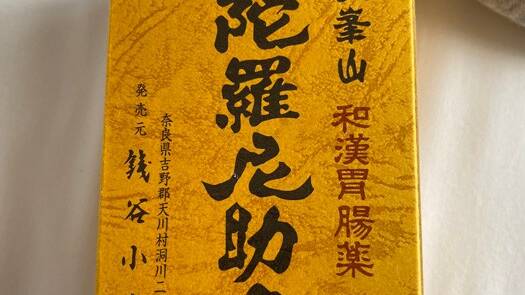 峯山 和漢胃腸薬
陀羅尼助
奈良県吉野郡天川村洞川二
発売元 銭谷小